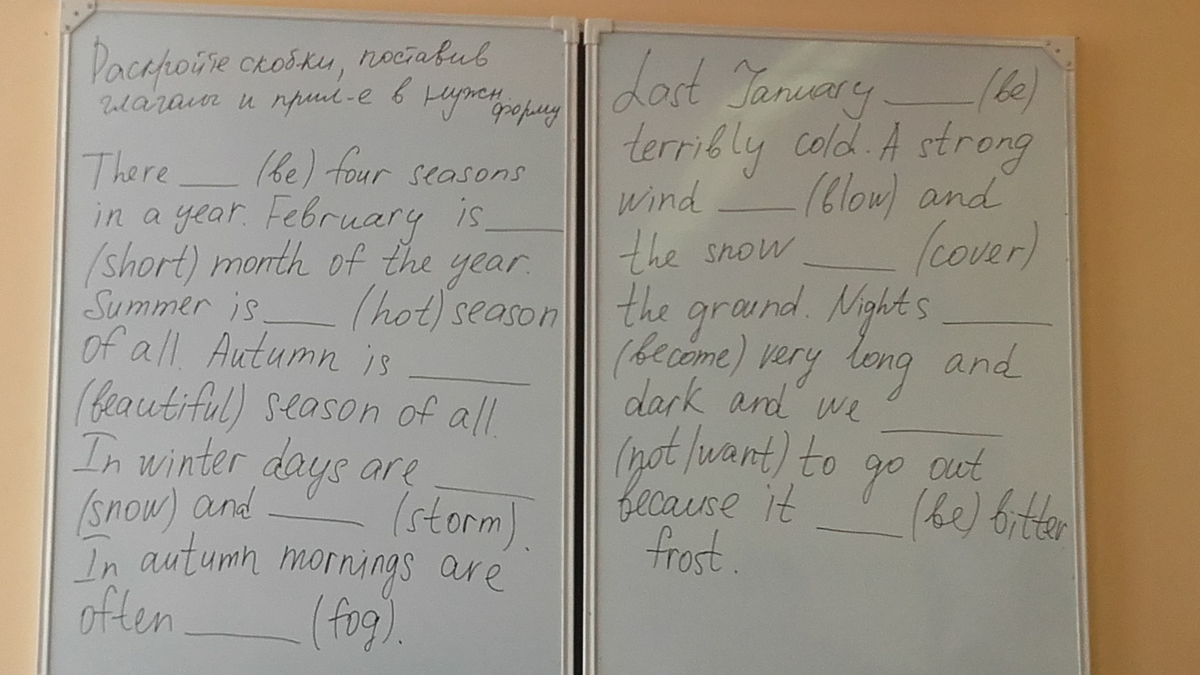 Раскройте скобки, поставив
глаголы и прил-е в нужн.
форму
There ___ (be) four seasons
in a year. February is ____
(short) month of the year.
Summer is ____ (hot) season
of all. Autumn is ______
(beautiful) season of all.
In winter days are _____
(snow) and _____ (storm).
In autumn mornings are
often ______ (fog).
Last January _____ (be)
terribly cold. A strong
wind ____ (blow) and
the snow _____ (cover)
the ground. Nights ______
(become) very long and
dark and we ______
(not/want) to go out
because it ____ (be) bitter
frost.